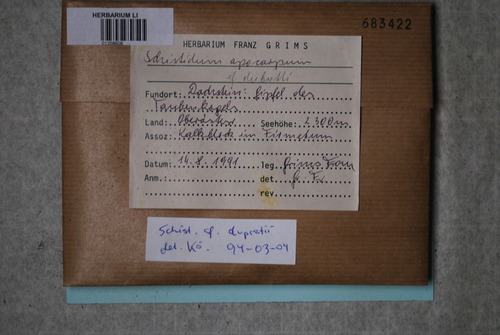 HERBARIUM LI
683422
HERBARIUM FRANZ GRIMS
Schistidium apocarpum
Fundort: Dachstein: Gipfel des
Taubenkogels
Land: Oberöstr. Seehöhe: 2300m
Assoz: Kalkblock im Firmetum
Datum: 14.8.1991 leg. Grims Franz
Anm.: det. G. Fr.
rev.
Schist. cf. dupretii
det. Kö. 94-03-04